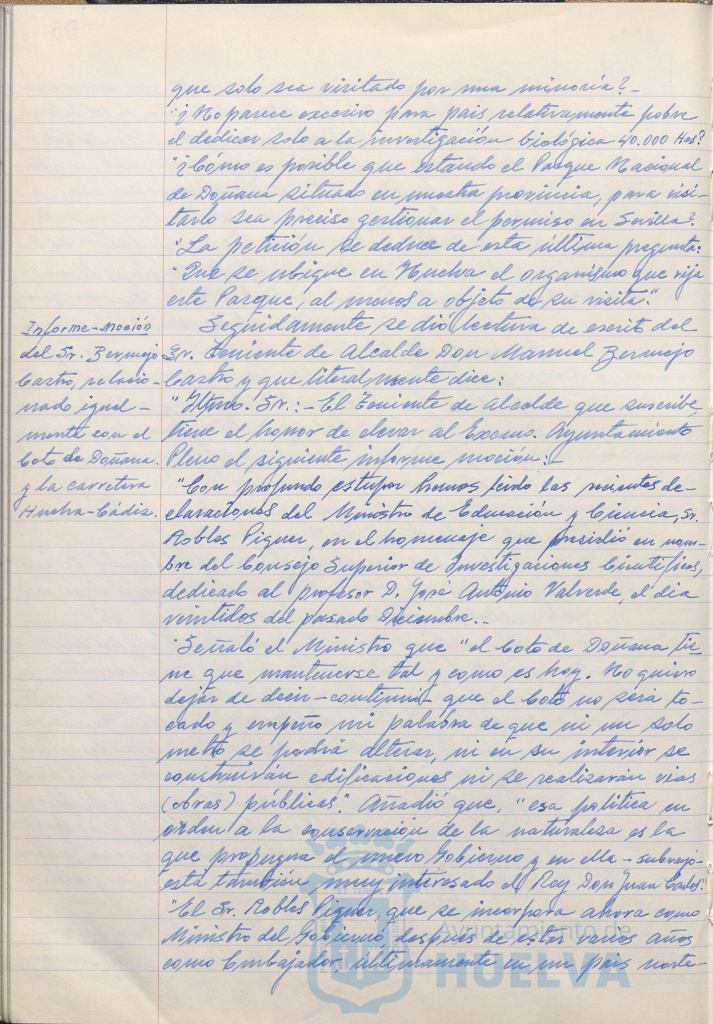 que solo sea visitado por una minoría?-
"¿No parece excesivo para pais relativamente pobre
el dedicar solo a la investigación biológica 40.000 Has?
"¿Cómo es posible que estando el Parque Nacional
de Doñana situado en nuestra provincia, para visi-
tarlo sea preciso gestionar el permiso en Sevilla?
"La petición se deduce de esta última pregunta:
"Que se ubique en Huelva el organismo que rija
este Parque, al menos a objeto de su visita."
Informe-Moción
del Sr. Bermejo
Castro, relacio-
nado igual-
mente con el
Coto de Doñana
y la carretera
Huelva-Cádiz.
Seguidamente se dió lectura de escrito del
Sr. Teniente de Alcalde Don Manuel Bermejo
Castro y que literalmente dice:
"Iltmo. Sr.:- El Teniente de Alcalde que suscribe,
tiene el honor de elevar al Excmo. Ayuntamiento
Pleno el siguiente informe moción:-
"Con profundo estupor hemos leido las recientes de-
claraciones del Ministro de Educación y Ciencia, Sr.
Robles Piquer, en el homenaje que presidió en nom-
bre del Consejo Superior de Investigaciones Científicas,
dedicado al profesor D. José Antonio Valverde, el día
veintidos del pasado Diciembre.-
"Señaló el Ministro que "el Coto de Doñana tie-
ne que mantenerse tal y como es hoy. No quiero
dejar de decir-continuó- que el Coto no será to-
cado y empeño mi palabra de que ni un solo
metro se podrá alterar, ni en su interior se
construirán edificaciones ni se realizarán vias
(obras) públicas". Añadió que, "esa política en
orden a la conservación de la naturaleza es la
que propugna el nuevo Gobierno y en ella -subrayó-
está también muy interesado el Rey Don Juan Carlos".
"El Sr. Robles Piquer, que se incorpora ahora como
Ministro del Gobierno después de estar varios años
como Embajador, últimamente en un pais norte-
Ayuntamiento de
HUELVA